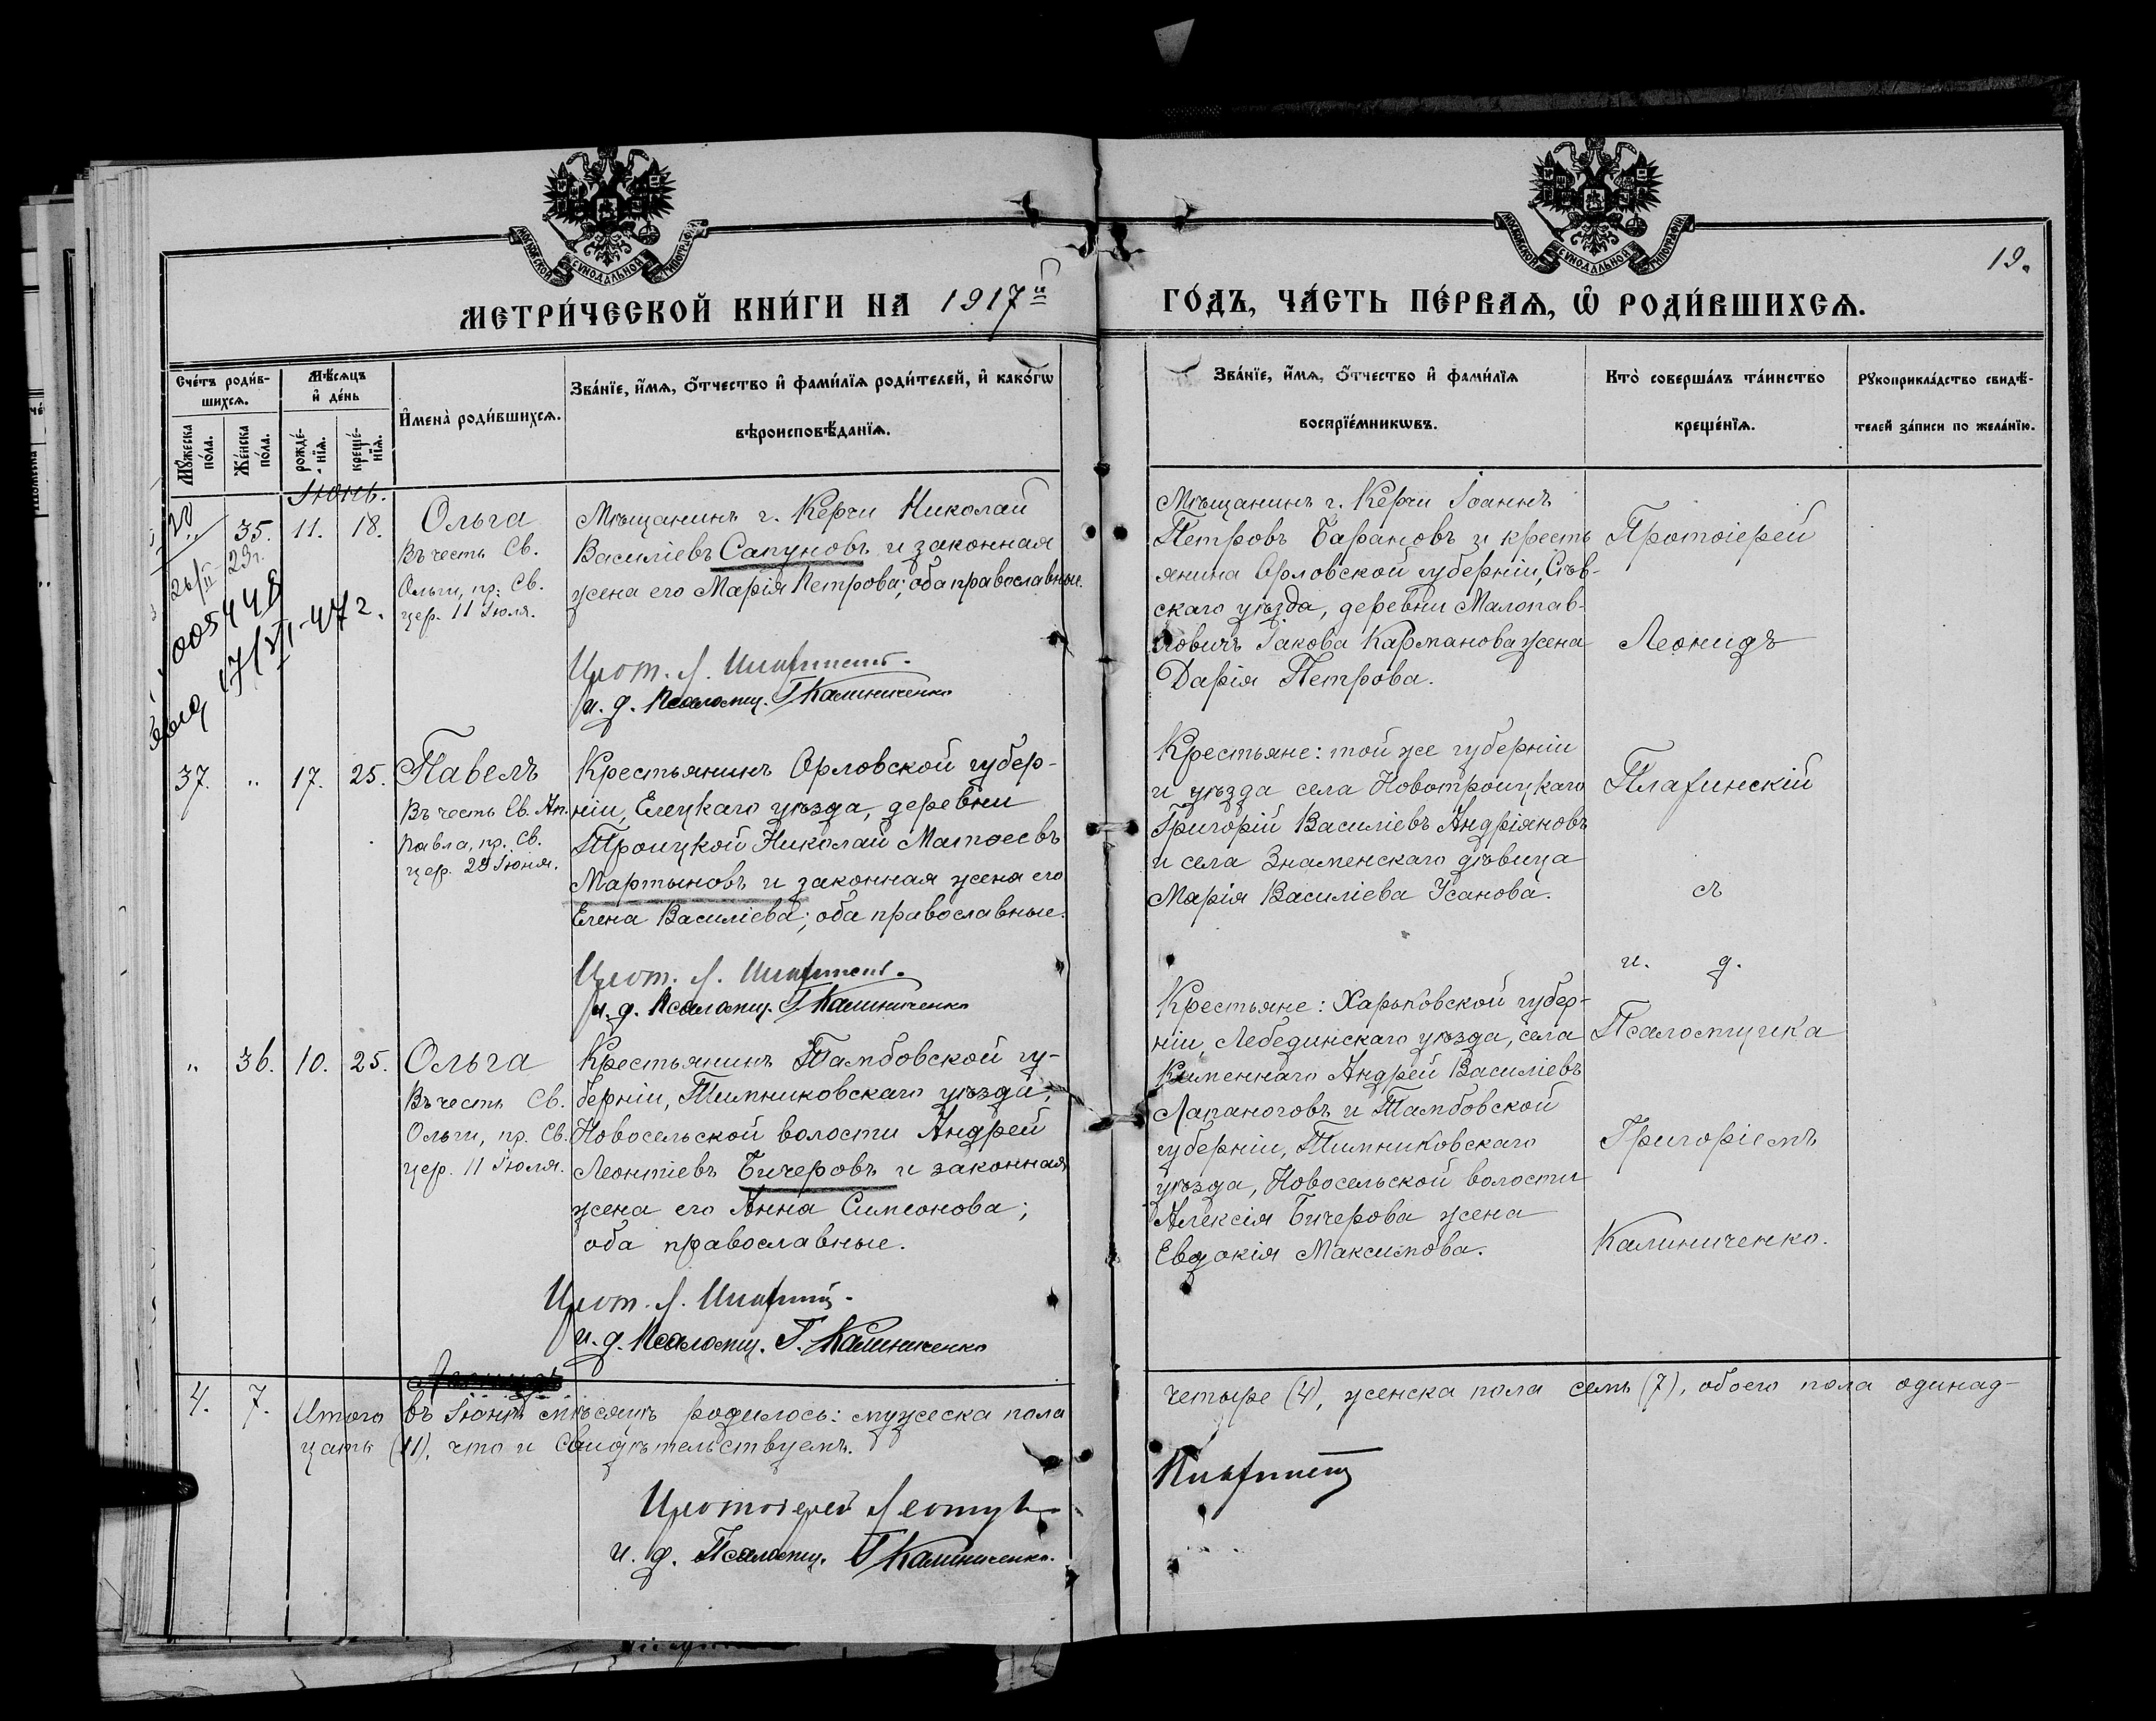 МОСКОВСКОЙ СѴНОДАЛЬНОЙ ТИПОГРАФІИ
МОСКОВСКОЙ СѴНОДАЛЬНОЙ ТИПОГРАФІИ
19.
МЕТРИ́ЧЕСКОЙ КНИ́ГИ НА 1917й
ГО́ДЪ, ЧА́СТЬ ПЕ́РВАѦ, Ѡ҆ РОДИ́ВШИХСѦ.
Сче́тъ роди́в-
шихсѧ.
Мꙋ́жеска по́ла.
Же́нска по́ла.
Мѣ́сѧцъ
и҆ де́нь
рожде́-
нїѧ.
креще́-
нїѧ.
И҆мена̀ роди́вшихсѧ.
Зва́нїе, и҆́мѧ, ѻ҆́тчество и҆ фами́лїѧ роди́телей, и҆ како́гѡ
вѣроисповѣ́данїѧ.
Зва́нїе, и҆́мѧ, ѻ҆́тчество и҆ фами́лїѧ
воспрїе́мникѡвъ.
Кто̀ соверша́лъ та́инство
креще́нїѧ.
Рꙋкоприкла́дство свидѣ́-
телей за́писи по жела́нїю.
Іюнь.
35. 11. 18. Ольга
Въ честь Св.
Ольги, пр. Св.
цер. 11 Іюля.
23г.
005448
17/VI-47г.
Мѣщанинъ г. Керчи Николай
Василіевъ Сапуновъ и законная
жена его Марія Петрова; оба православные.
Прот. Л.
и. д. Псаломщ. Г Калиниченко
Мѣщанинъ г. Керчи Іоаннъ
Петровъ Барановъ и кресть
янина Орловской губерніи, Сѣв-
скаго уѣзда, деревни Малопав-
ловичъ Іакова Карманова жена
Дарія Петрова.
Протоіерей
Леонидъ
37. " 17. 25. Павелъ
Въ честь Св. Ап.
Павла, пр. Св.
цер. 29 Іюня.
Крестьянинъ Орловской губер-
ніи, Елецкаго уѣзда, деревни
Троицкой Николай Матѳеевъ
Мартыновъ и законная жена его
Елена Василіева; оба православные.
Прот. Л.
и. д. Псаломщ. Г Калиниченко
Крестьяне: той же губерніи
и уѣзда села Новотроицкаго
Григорій Василіевъ Андріяновъ
и села Знаменскаго дѣвица
Марія Василіева Усанова.
съ
и. д.
" 36. 10. 25. Ольга
Въ честь Св.
Ольги, пр. Св.
цер. 11 Іюля.
Крестьянинъ Тамбовской гу-
берніи, Тимниковскаго уѣзда,
Новосельской волости Андрей
Леонтіевъ Бичеровъ и законная
жена его Анна Симеонова;
оба православные.
Прот. Л.
и. д. Псаломщ. Г. Калиниченко
Крестьяне: Харьковской губер-
ніи, Лебединскаго уѣзда, села
Каменнаго Андрей Василіевъ
Лапоноговъ и Тамбовской
губерніи, Тимниковскаго
уѣзда, Новосельской волости
Алексія Бичерова жена
Евдокія Максимова.
Псаломщика
Григоріемъ
Калиниченко.
4. 7. Итого въ Іюнѣ мѣсяцѣ родилось: мужеска пола
четыре (4), женска пола семь (7), обоего пола одинад-
цать (11), что и свидѣтельствуемъ.
Протоіерей Леонидъ
и. д. Псаломщ. Г Калиниченко.